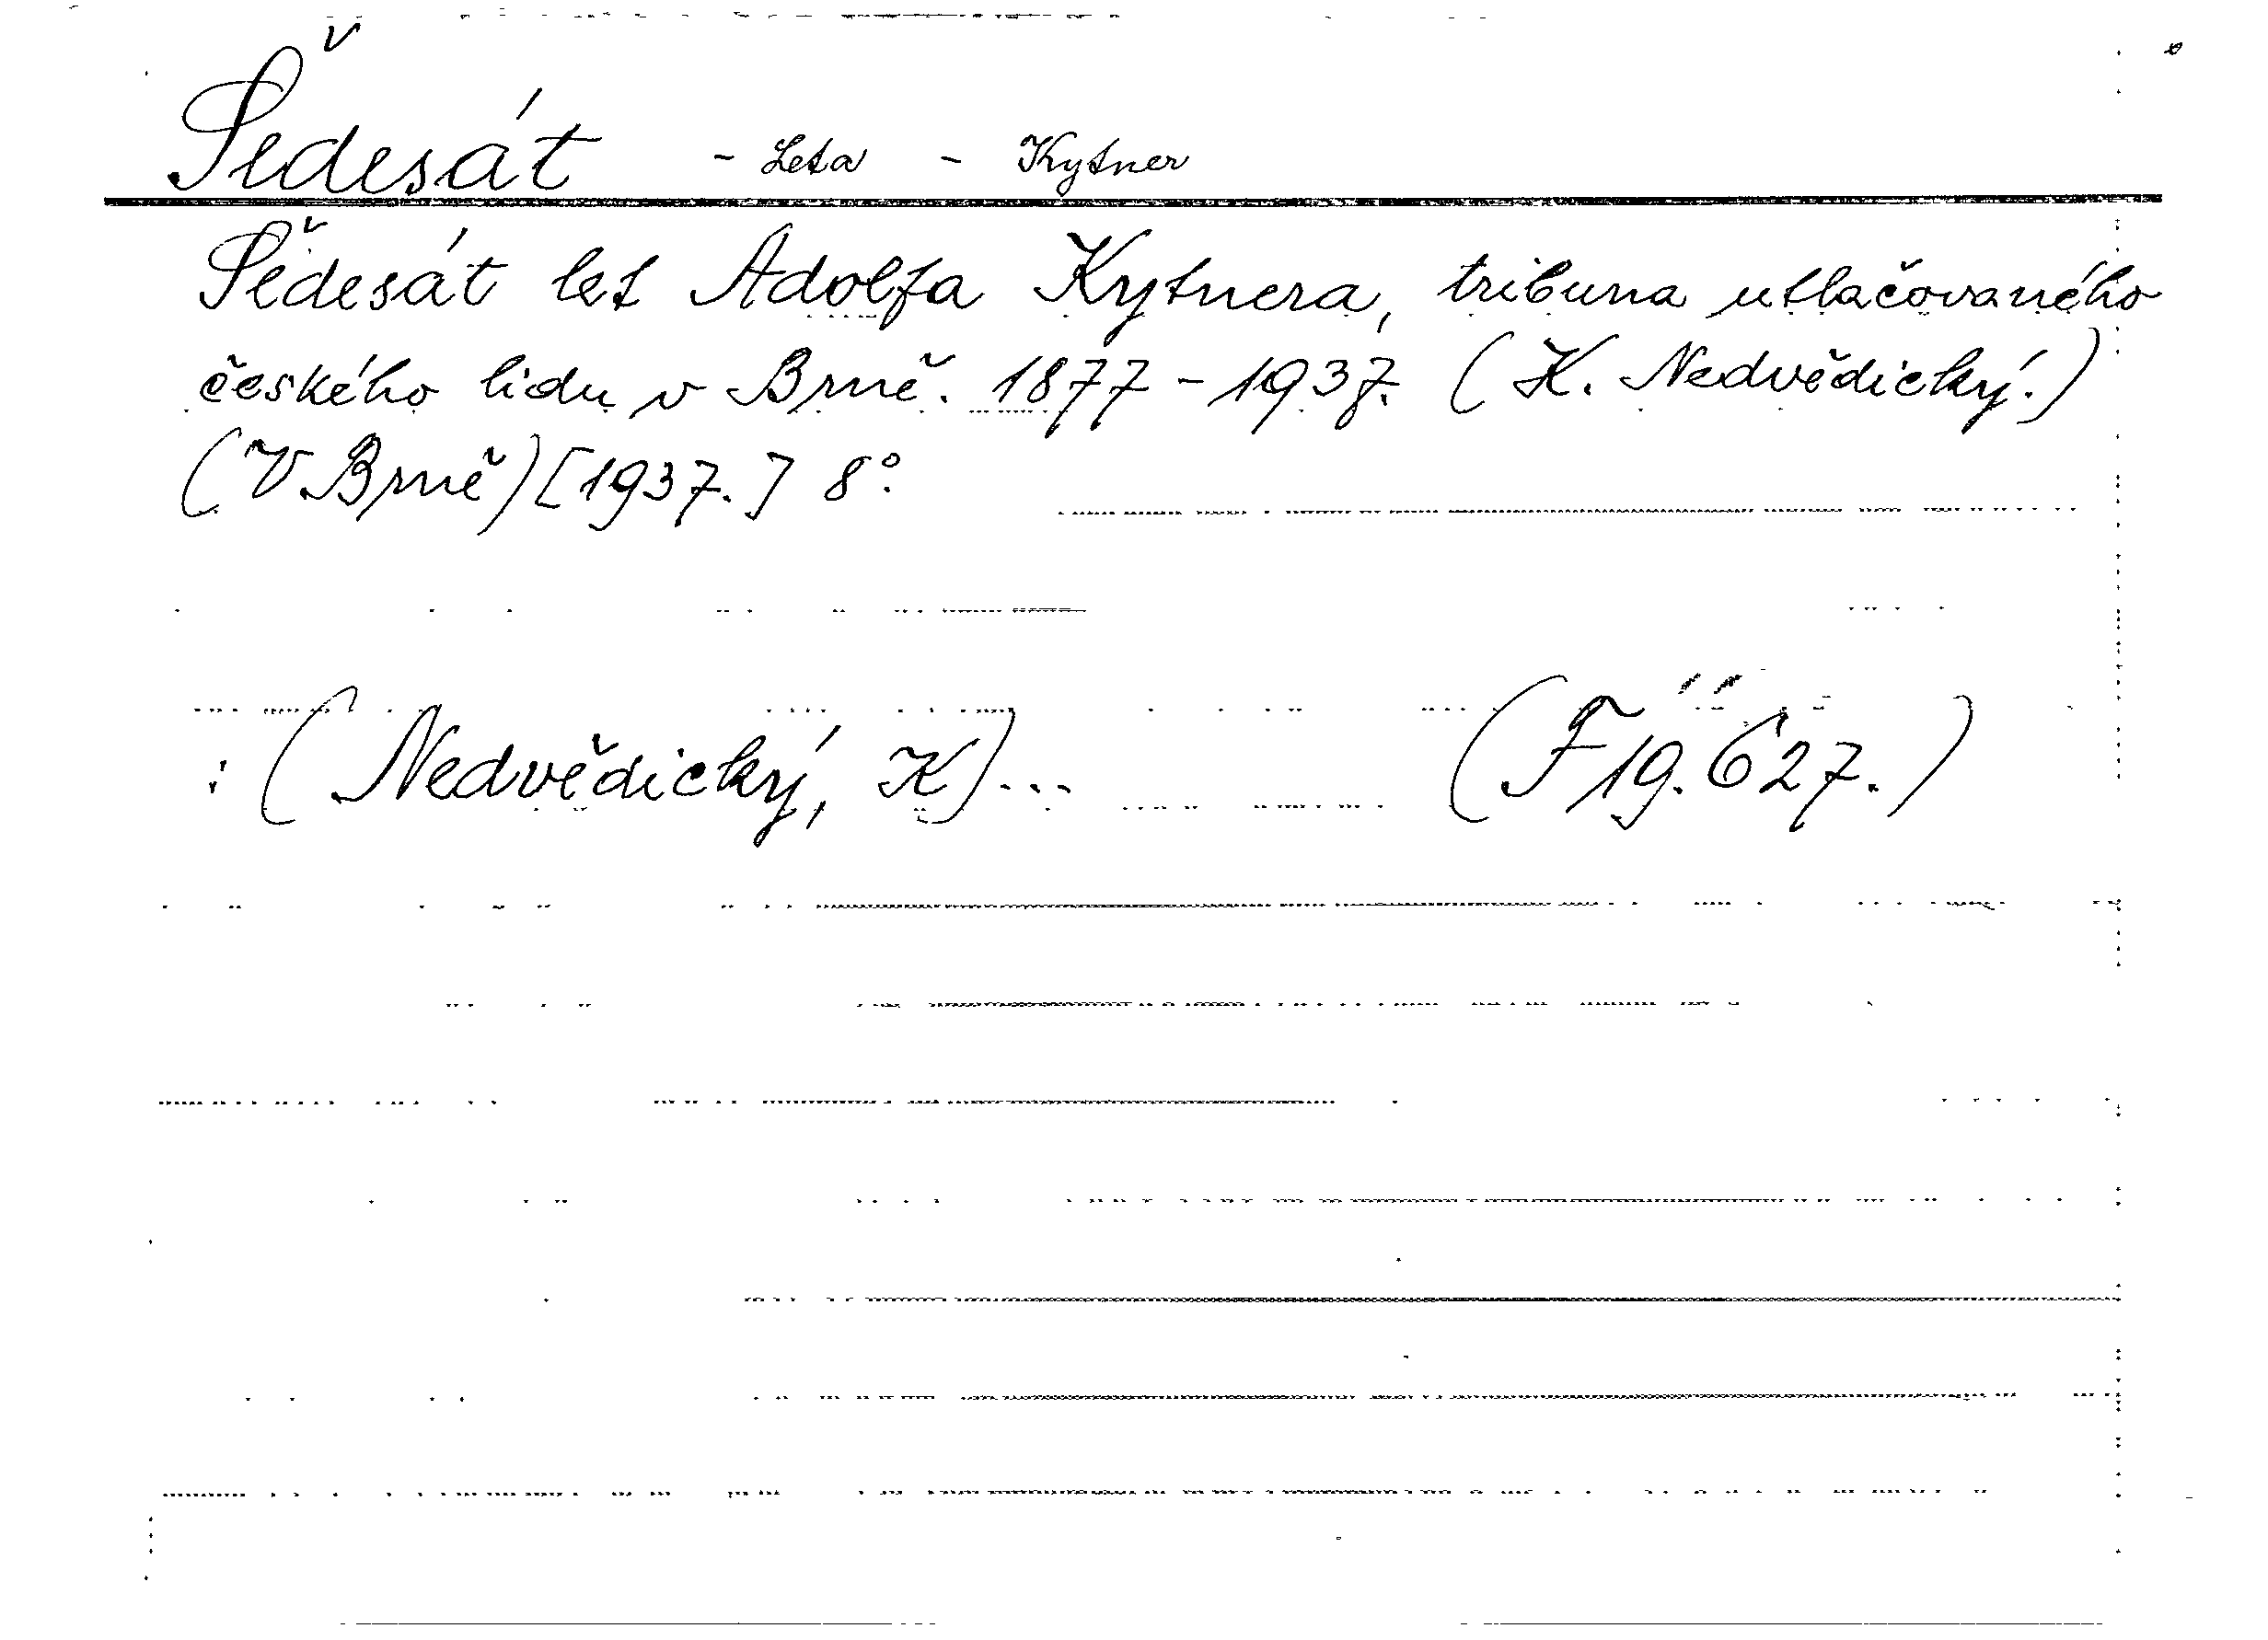 Šedesát - Leta - Kytner
Šedesát let Adolfa Kytnera, tribuna utlačovaného
českého lidu v Brně. 1877-1937. (K. Nedvědický.)
(V Brně) [1937.] 8°.
: (Nedvědický, K)... (F 19.627.)